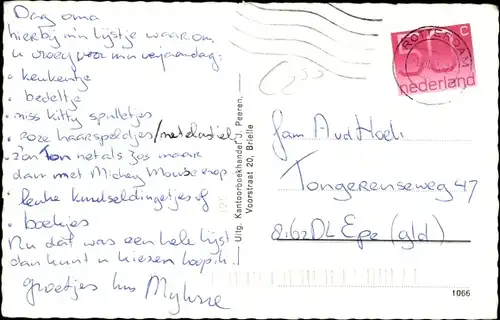 Dag oma
hierbij m'n lijstje waarom
u vroeg voor m'n verjaardag:
• keukentje
• bedeltje
• miss kitty spulletjes
• roze haarspeldjes/
• zo'n Ton net als Jos maar
dan met Mickey Mouse erop
• leuke knutseldingetjes of
• boekjes
Nu dat was een hele lijst
dan kunt u kiezen hoop ik.
groetjes
Uitg. Kantoorboekhandel J. Peeren,
Voorstraat 20, Brielle
ROTTERDAM
55 C
nederland
fam
Tongerenseweg 47
8162DL Epe (gld)
1066